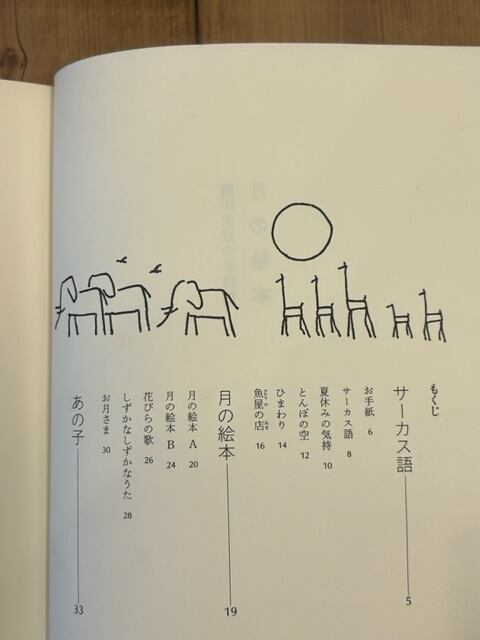 もくじ
サーカス語 5
お手紙 6
サーカス語 8
夏休みの気持 10
とんぼの空 12
ひまわり 14
魚屋の店 16
月の絵本 19
月の絵本 A 20
月の絵本 B 24
花びらの歌 26
しずかなしずかなうた 28
お月さま 30
あの子 33